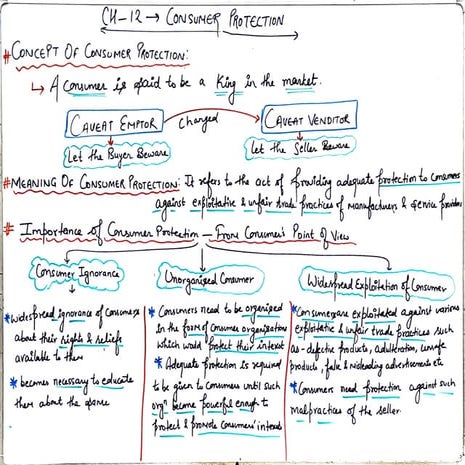 CH-12 → CONSUMER PROTECTION
# CONCEPT OF CONSUMER PROTECTION:
↳ A Consumer is said to be a King in the market.
CAVEAT EMPTOR Changed CAVEAT VENDITOR
Let the Buyer Beware Let the Seller Beware
# MEANING OF CONSUMER PROTECTION: It refers to the act of Providing adequate protection to Consumers
against exploitative & unfair trade practices of manufacturers & Service providers
# Importance of Consumer Protection — From Consumer's Point of View
Consumer Ignorance
* widespread ignorance of Consumers
about their rights & reliefs
available to them
* becomes necessary to educate
them about the same
Unorganised Consumer
* Consumers need to be organised
in the form of Consumer organisations
which would protect their interest
* Adequate protection is required
to be given to Consumers until such
orgn become powerful enough to
protect & promote Consumers' interests
Widespread Exploitation of Consumer
* Consumers are exploitated against various
exploitative & unfair trade practices such
as - defective products, adulteration, unsafe
products, false & misleading advertisements etc
* Consumers need protection against such
malpractices of the seller.